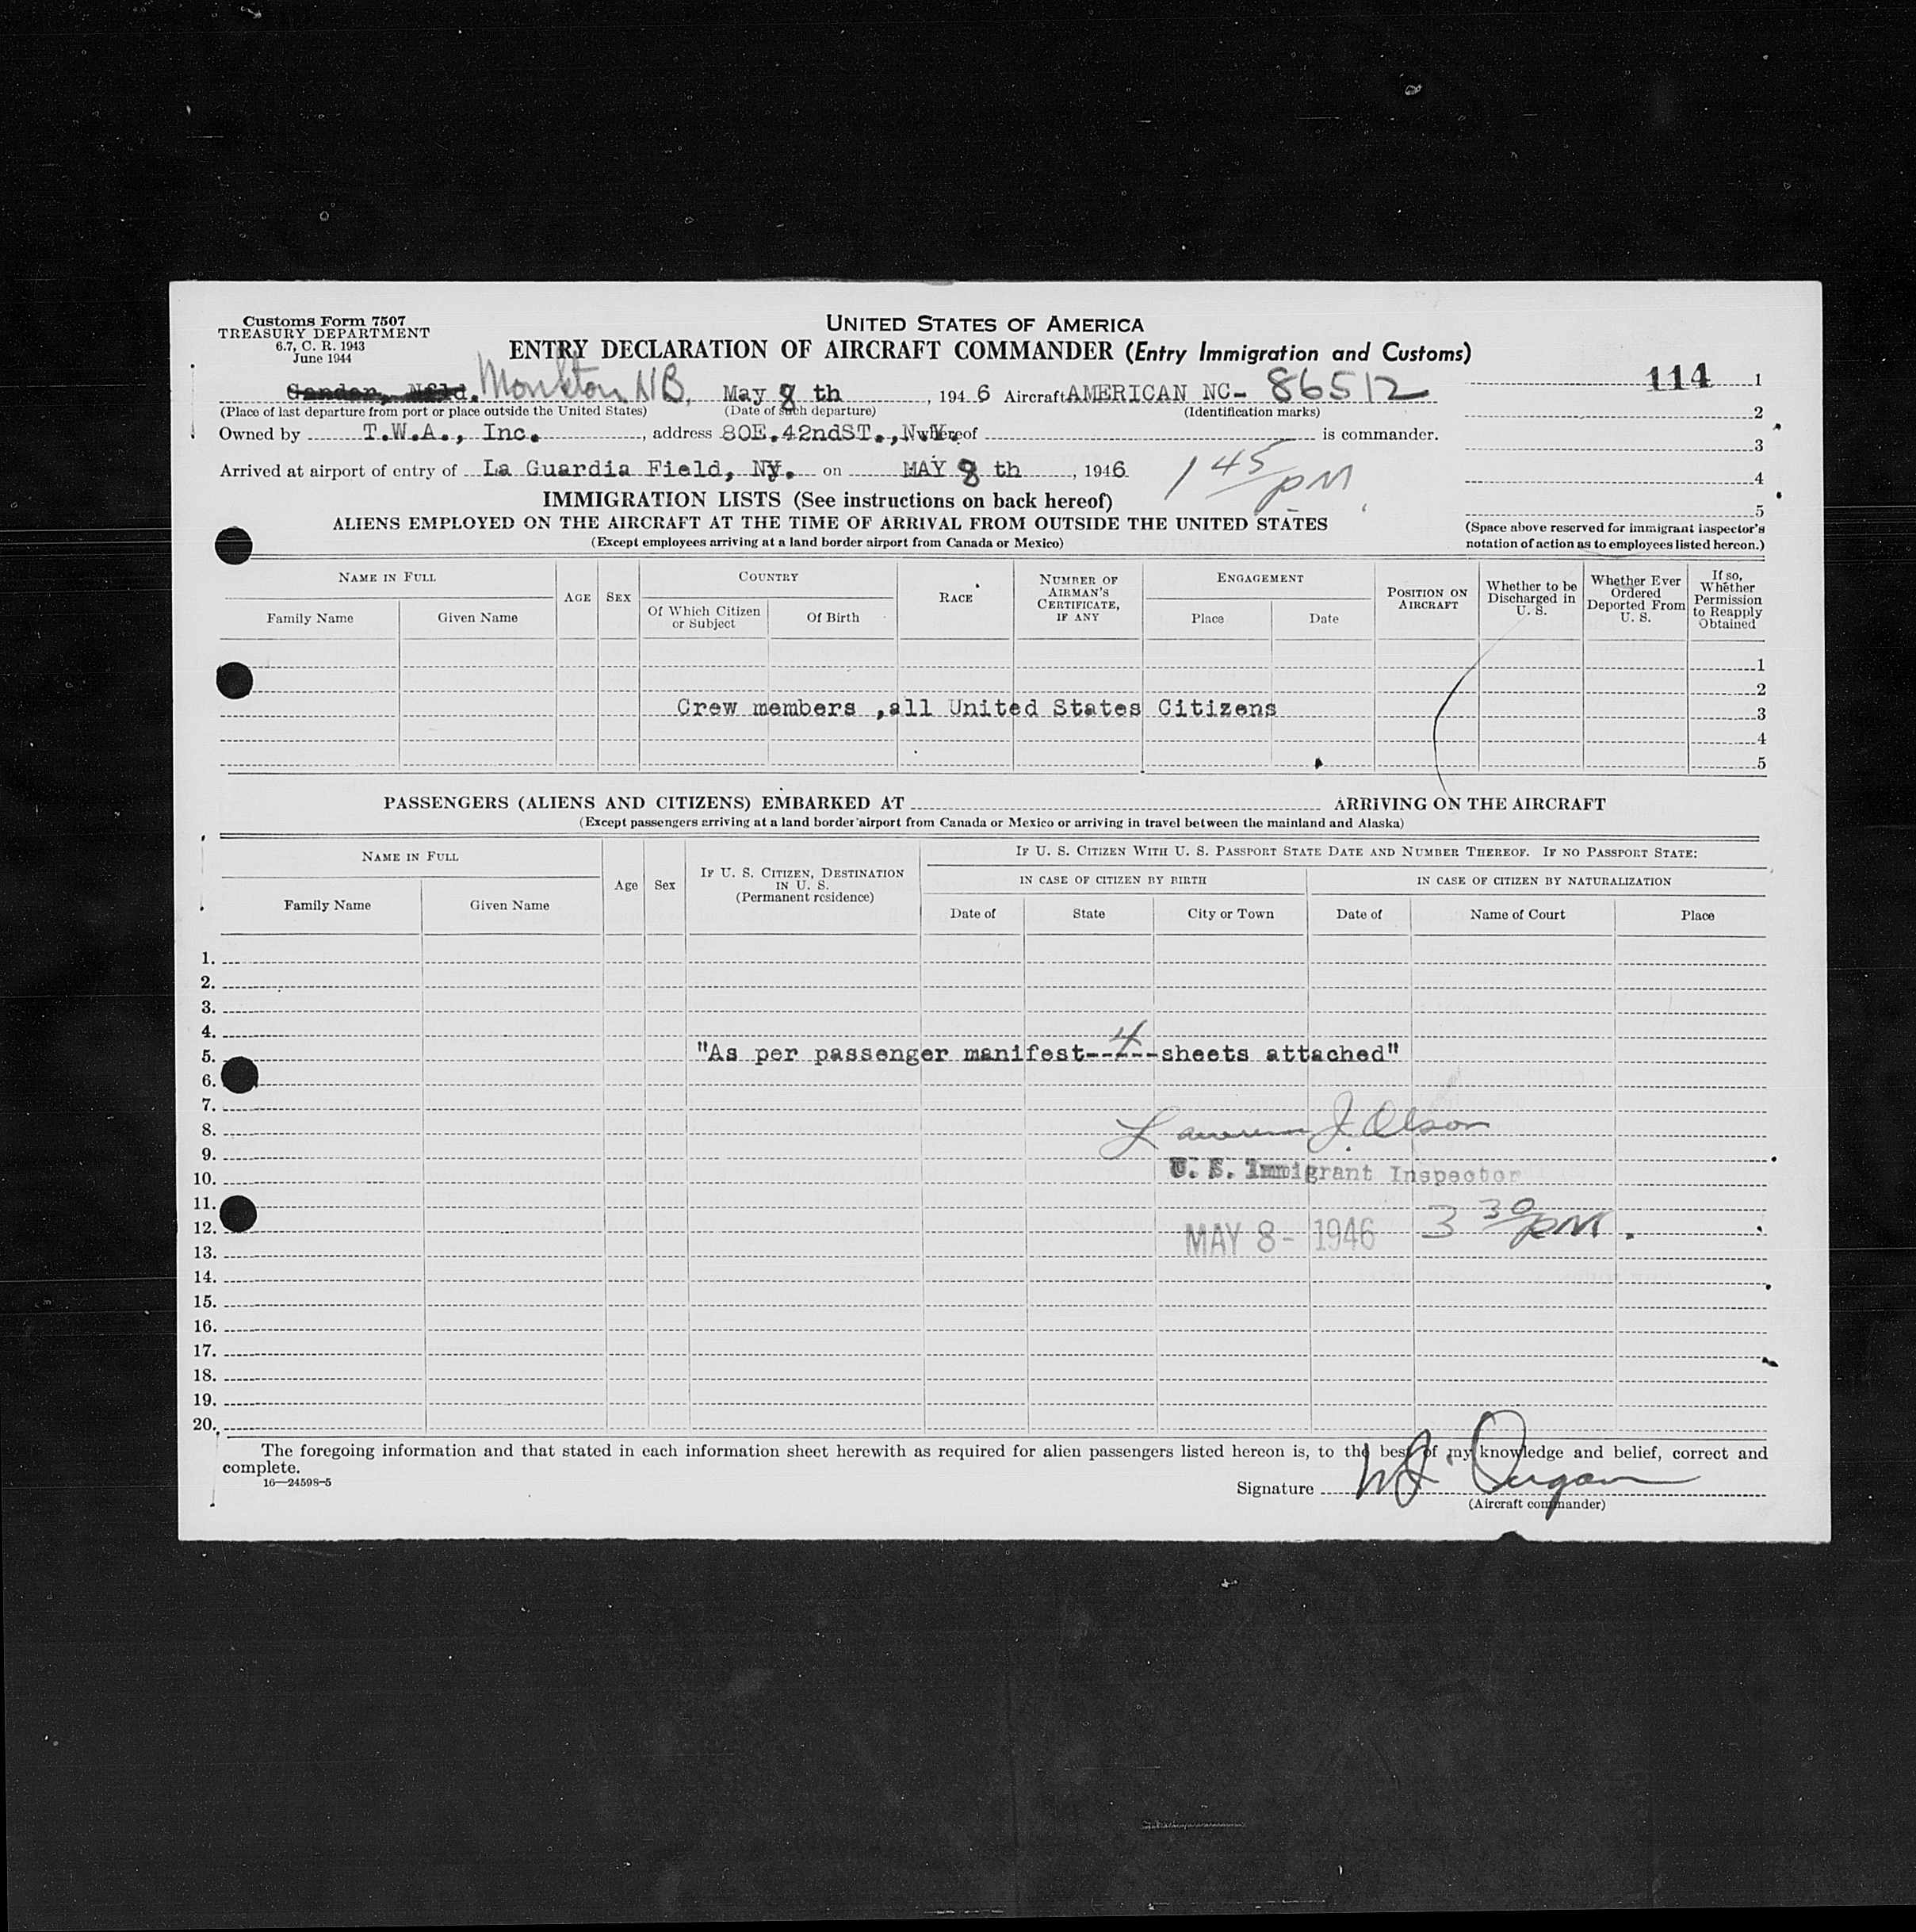 Customs Form 7507
TREASURY DEPARTMENT
6.7, C. R. 1943
June 1944
UNITED STATES OF AMERICA
ENTRY DECLARATION OF AIRCRAFT COMMANDER (Entry Immigration and Customs)
114 1
Gander, Nfld. Monkton NB, May 8 th, 1946 Aircraft AMERICAN NC- 86512
(Place of last departure from port or place outside the United States) (Date of such departure) (Identification marks) 2
Owned by T.W.A., Inc., address 80E.42ndST.,N.Y. whereof is commander.
3
Arrived at airport of entry of La Guardia Field, NY. on MAY 8 th, 1946 1 45 PM
4
IMMIGRATION LISTS (See instructions on back hereof)
5
ALIENS EMPLOYED ON THE AIRCRAFT AT THE TIME OF ARRIVAL FROM OUTSIDE THE UNITED STATES
(Except employees arriving at a land border airport from Canada or Mexico)
(Space above reserved for immigrant inspector's
notation of action as to employees listed hereon.)
NAME IN FULL
Family Name Given Name
AGE SEX
COUNTRY
Of Which Citizen
or Subject
Of Birth
RACE
NUMBER OF
AIRMAN'S
CERTIFICATE,
IF ANY
ENGAGEMENT
Place Date
POSITION ON
AIRCRAFT
Whether to be
Discharged in
U. S.
Whether Ever
Ordered
Deported From
U. S.
If so,
Whether
Permission
to Reapply
Obtained
1
2
Crew members ,all United States Citizens 3
4
5
PASSENGERS (ALIENS AND CITIZENS) EMBARKED AT ARRIVING ON THE AIRCRAFT
(Except passengers arriving at a land border airport from Canada or Mexico or arriving in travel between the mainland and Alaska)
NAME IN FULL
Family Name Given Name
Age Sex
IF U. S. CITIZEN, DESTINATION
IN U. S.
(Permanent residence)
IF U. S. CITIZEN WITH U. S. PASSPORT STATE DATE AND NUMBER THEREOF. IF NO PASSPORT STATE:
IN CASE OF CITIZEN BY BIRTH IN CASE OF CITIZEN BY NATURALIZATION
Date of State City or Town Date of Name of Court Place
1.
2.
3.
4.
5. "As per passenger manifest--4--sheets attached"
6.
7.
8. Lawrence J. Olson
9.
10. U. S. Immigrant Inspector
11.
12. MAY 8- 1946 3 30 PM.
13.
14.
15.
16.
17.
18.
19.
20.
The foregoing information and that stated in each information sheet herewith as required for alien passengers listed hereon is, to the best of my knowledge and belief, correct and
complete.
16—24598-5
Signature
(Aircraft commander)